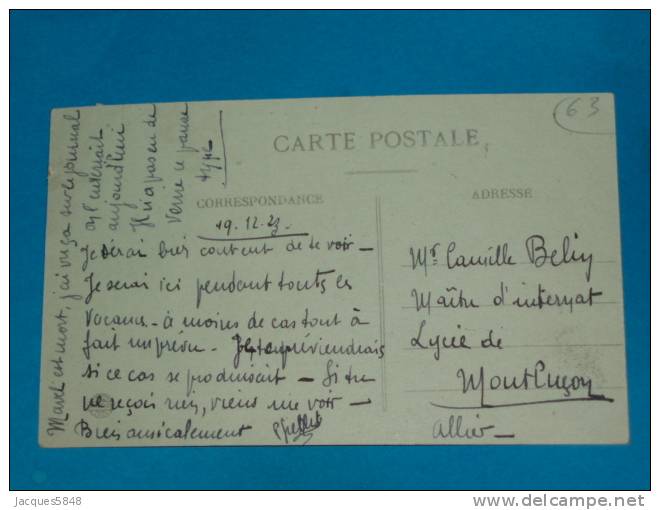 63
CARTE POSTALE
CORRESPONDANCE
ADRESSE
19.12.23.
Je serai bien content de te voir —
Je serai ici pendant toutes les
vacances - à moins de cas tout à
fait imprévu - Je te préviendrais
si ce cas se produisait - Si tu
ne reçois rien, viens me voir —
Bien amicalement
Mr Camille Belin
Maître d'internat
Lycée de
Montluçon
Allier —
Marel est mort, j'ai vu ça sur le journal
on l'enterrait
aujourd'hui
Il n'a pas eu de
veine ce pauvre
type
Jacques5848
www.delcampe.net